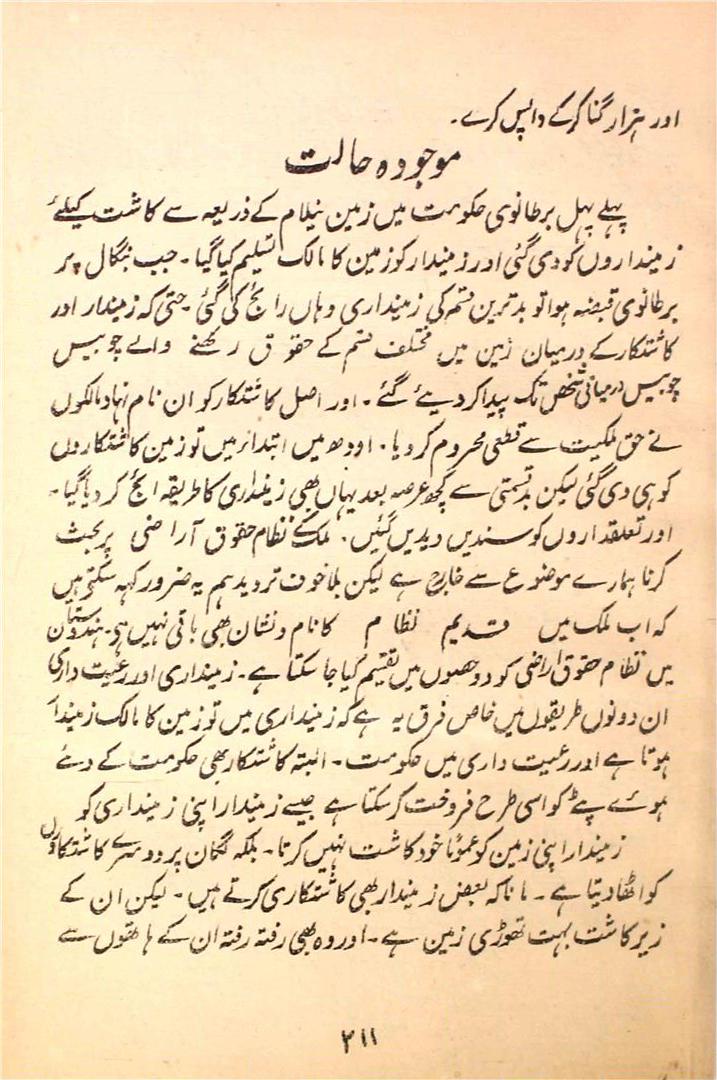 اور ہزار گنا کرکے واپس کرے۔
موجودہ حالت
پہلے پہل برطانوی حکومت میں زمین نیلام کے ذریعہ سے کاشت کیلئے
زمینداروں کو دی گئی اور زمیندار کو زمین کا مالک تسلیم کیا گیا۔ جب بنگال پر
برطانوی قبضہ ہوا تو بدترین قسم کی زمینداری وہاں رائج کی گئی حتیٰ کہ زمیندار اور
کاشتکار کے درمیان زمین میں مختلف قسم کے حقوق رکھنے والے چوبیس
چوبیس درمیانی شخص تک پیدا کر دیئے گئے۔ اور اصل کاشتکار کو ان نام نہاد مالکوں
نے حق ملکیت سے قطعی محروم کر دیا۔ اودھ میں ابتداء میں تو زمین کاشتکاروں
کو ہی دی گئی لیکن بدقسمتی سے کچھ عرصہ بعد یہاں بھی زمینداری کا طریقہ رائج کر دیا گیا۔
اور تعلقداروں کو سندیں دیدیں گئیں۔ ملک کے نظام حقوق آراضی پر بحث
کرنا ہمارے موضوع سے خارج ہے لیکن بلا خوف تردید ہم یہ ضرور کہہ سکتے ہیں
کہ اب ملک میں قدیم نظام کا نام و نشان بھی باقی نہیں ہے۔ ہندوستان
میں نظام حقوق اراضی کو دو حصوں میں تقسیم کیا جا سکتا ہے۔ زمینداری اور رعیت داری
ان دونوں طریقوں میں خاص فرق یہ ہے کہ زمینداری میں تو زمین کا مالک زمیندار
ہوتا ہے اور رعیت داری میں حکومت۔ البتہ کاشتکار بھی حکومت کے دئے
ہوئے پٹے کو اسی طرح فروخت کر سکتا ہے جیسے زمیندار اپنی زمینداری کو
زمیندار اپنی زمین کو عموماً خود کاشت نہیں کرتا۔ بلکہ لگان پر دوسرے کاشتکاروں
کو اٹھا دیتا ہے۔ مانا کہ بعض زمیندار بھی کاشتکاری کرتے ہیں۔ لیکن ان کے
زیر کاشت بہت تھوڑی زمین ہے۔ اور وہ بھی رفتہ رفتہ ان کے ہاتھوں سے
۲۱۱